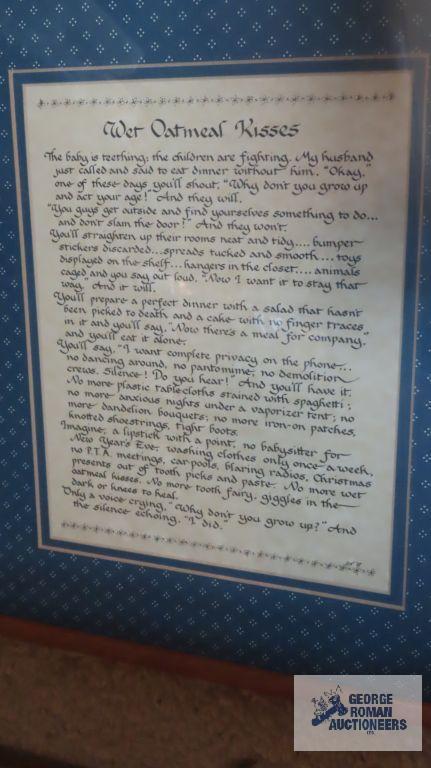 Wet Oatmeal Kisses
The baby is teething; the children are fighting. My husband
just called and said to eat dinner without him. "Okay,"
one of these days you'll shout, "Why don't you grow up
and act your age!" And they will.
"You guys get outside and find yourselves something to do...
and don't slam the door!" And they won't.
You'll straighten up their rooms neat and tidy.... bumper
stickers discarded...spreads tucked and smooth.... toys
displayed on the shelf... hangers in the closet.... animals
caged, and you say out loud, "Now I want it to stay that
way." And it will.
You'll prepare a perfect dinner with a salad that hasn't
been picked to death and a cake with no finger traces
in it and you'll say, "Now there's a meal for company,"
and you'll eat it alone.
You'll say, "I want complete privacy on the phone,...
no dancing around, no pantomime, no demolition
crews. Silence! Do you hear!" And you'll have it.
No more plastic tablecloths stained with spaghetti;
no more anxious nights under a vaporizer tent; no
more dandelion bouquets; no more iron-on patches,
knotted shoestrings, tight boots.
Imagine, a lipstick with a point, no babysitter for
New Year's Eve, washing clothes only once a week,
no P.T.A. meetings, car pools, blaring radios, Christmas
presents out of tooth picks and paste. No more wet
oatmeal kisses. No more tooth fairy, giggles in the
dark or knees to heal.
Only a voice crying, "Why don't you grow up?" And
the silence echoing, "I did."
GEORGE
ROMAN
AUCTIONEERS
LTD.